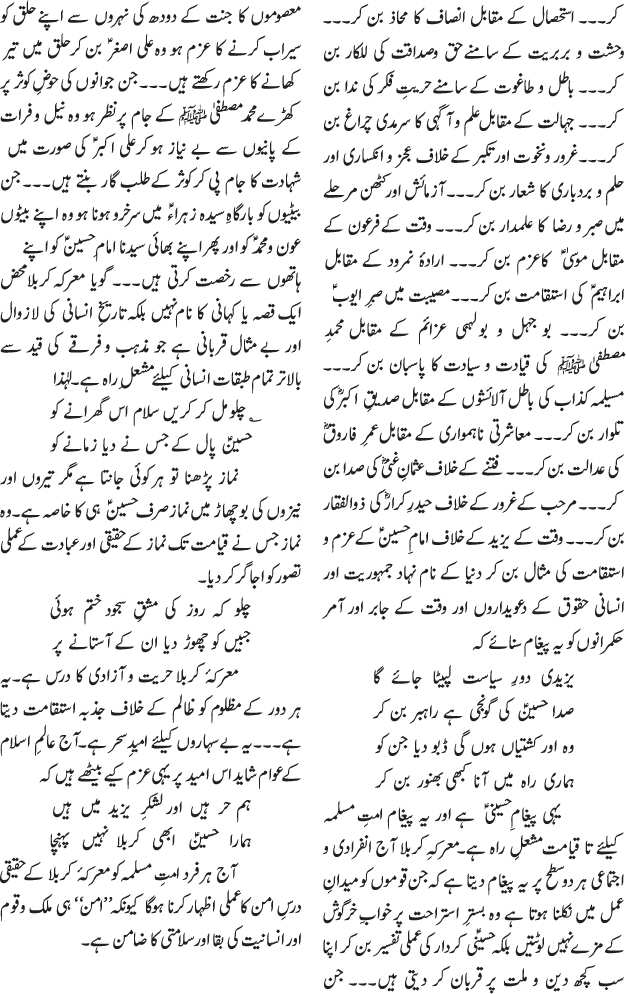 کر۔۔۔ استحصال کے مقابل انصاف کا محاذ بن کر۔۔۔
وحشت و بربریت کے سامنے حق و صداقت کی للکار بن
کر۔۔۔ باطل و طاغوت کے سامنے حریتِ فکر کی ندا بن
کر۔۔۔ جہالت کے مقابل علم و آگہی کا سرمدی چراغ بن
کر۔۔۔غرور و نخوت اور تکبر کے خلاف عجز و انکساری اور
حلم و بردباری کا شعار بن کر۔۔۔آزمائش اور کٹھن مرحلے
میں صبر و رضا کا علمدار بن کر۔۔۔ وقت کے فرعون کے
مقابل موسیٰؑ کا عزم بن کر۔۔۔ ارادۂ نمرود کے مقابل
ابراہیمؑ کی استقامت بن کر۔۔۔مصیبت میں صبرِ ایوبؑ
بن کر۔۔۔ بوجہل و بولہبی عزائم کے مقابل محمدِ
مصطفیٰ ﷺ کی قیادت و سیادت کا پاسبان بن کر۔۔۔
مسیلمہ کذاب کی باطل آلائشوں کے مقابل صدیقِ اکبرؓ کی
تلوار بن کر۔۔۔ معاشرتی ناہمواری کے مقابل عمرِ فاروقؓ
کی عدالت بن کر۔۔۔ فتنے کے خلاف عثمانِ غنیؓ کی صدا بن
کر۔۔۔ مرحب کے غرور کے خلاف حیدرِ کرارؓ کی ذوالفقار
بن کر۔۔۔ وقت کے یزید کے خلاف امام حسینؑ کے عزم و
استقامت کی مثال بن کر دنیا کے نام نہاد جمہوریت اور
انسانی حقوق کے دعویداروں اور وقت کے جابر اور آمر
حکمرانوں کو یہ پیغام سنائے کہ
یزیدی دورِ سیاست لپیٹا جائے گا
صدا حسینؑ کی گونجی ہے راہبر بن کر
وہ اور کشتیاں ہوں گی ڈبو دیا جن کو
ہماری راہ میں آنا کبھی بھنور بن کر
یہی پیغامِ حسینیؑ ہے اور یہ پیغام امتِ مسلمہ
کیلئے تا قیامت مشعلِ راہ ہے۔معرکۂ کربلا آج انفرادی و
اجتماعی ہر دو سطح پر یہ پیغام دیتا ہے کہ جن قوموں کو میدانِ
عمل میں نکلنا ہوتا ہے وہ بسترِ استراحت پر خوابِ خرگوش
کے مزے نہیں لوٹتیں بلکہ حسینیؑ کردار کی عملی تفسیر بن کر اپنا
سب کچھ دین و ملت پر قربان کر دیتی ہیں۔۔۔ جن
معصوموں کا جنت کے دودھ کی نہروں سے اپنے حلق کو
سیراب کرنے کا عزم ہو وہ علی اصغرؑ بن کر حلق میں تیر
کھانے کا عزم رکھتے ہیں۔۔۔ جن جوانوں کی حوضِ کوثر پر
کھڑے محمد مصطفیٰ ﷺ کے جام پر نظر ہو وہ نیل و فرات
کے پانیوں سے بے نیاز ہو کر علی اکبرؑ کی صورت میں
شہادت کا جام پی کر کوثر کے طلب گار بنتے ہیں۔۔۔ جن
بیٹیوں کو بارگاہِ سیدہ زہراءؑ میں سرخرو ہونا ہو وہ اپنے بیٹوں
عون و محمدؑ کو اور پھر اپنے بھائی سیدنا امام حسینؑ کو اپنے
ہاتھوں سے رخصت کرتی ہیں۔۔۔ گویا معرکہ کربلا محض
ایک قصہ یا کہانی کا نام نہیں بلکہ تاریخِ انسانی کی لازوال
اور بے مثال قربانی ہے جو مذہب و فرقے کی قید سے
بالاتر تمام طبقات انسانی کیلئے مشعلِ راہ ہے۔ لہٰذا
؂ چلو مل کر کریں سلام اس گھرانے کو
حسینؑ پال کے جس نے دیا زمانے کو
نماز پڑھنا تو ہر کوئی جانتا ہے مگر تیروں اور
نیزوں کی بوچھاڑ میں نماز صرف حسینؑ ہی کا خاصہ ہے۔وہ
نماز جس نے قیامت تک نماز کے حقیقی اور عبادت کے عملی
تصور کو اجاگر کر دیا۔
چلو کہ روز کی مشقِ سجود ختم ہوئی
جبیں کو چھوڑ دیا ان کے آستانے پر
معرکۂ کربلا حریت و آزادی کا درس ہے۔یہ
ہر دور کے مظلوم کو ظالم کے خلاف جذبہ استقامت دیتا
ہے۔۔۔یہ بے سہاروں کیلئے امیدِ سحر ہے۔آج عالمِ اسلام
کے عوام شاید اس امید پر یہی عزم کیے بیٹھے ہیں کہ
ہم حر ہیں اور لشکرِ یزید میں ہیں
ہمارا حسینؑ ابھی کربلا نہیں پہنچا
آج ہر فرد امتِ مسلمہ کو معرکۂ کربلا کے حقیقی
درسِ امن کا عملی اظہار کرنا ہوگا کیونکہ ’’امن‘‘ ہی ملک و قوم
اور انسانیت کی بقا اور سلامتی کا ضامن ہے۔